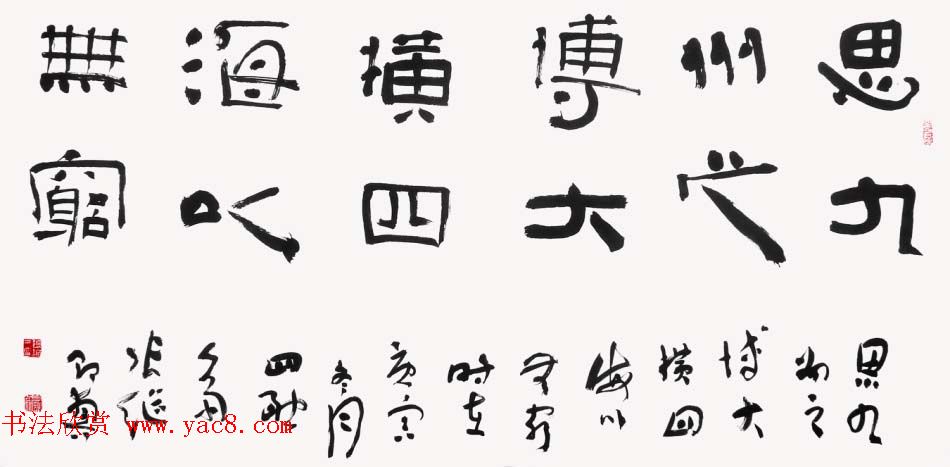 思九
州之
博大
橫四
海以
無窮
思九
州之
博大
横四
海以
無窮
时在
庚寅
冬月
张继
书法欣赏 www.yac8.com